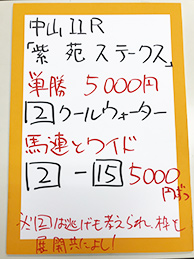 中山11R
「紫苑ステークス」
単勝 5000円
2 クールウォーター
馬連とワイド
2-15 5000
円ずつ
※2は逃げも考えられ、枠と
展開共によし!